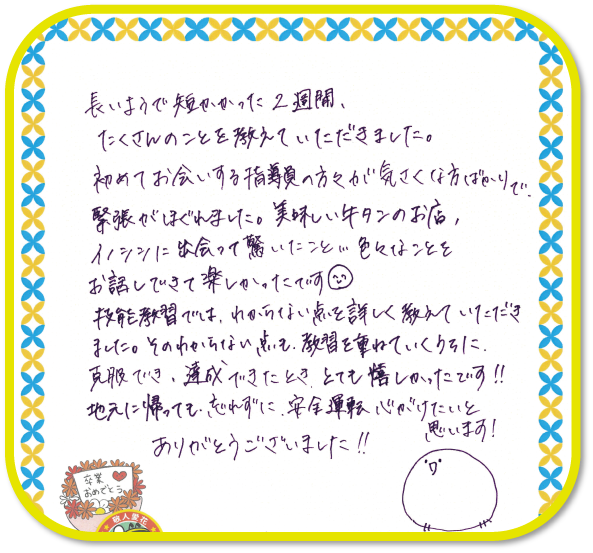 長いようで短かかった2週間、
たくさんのことを教えていただきました。
初めてお会いする指導員の方々が気さくな方ばかりで、
緊張がほぐれました。美味しい牛タンのお店,
イノシシに出会って驚いたこと… 色々なことを
お話しできて楽しかったです
技能教習では、わからない点を詳しく教えていただき
ました。そのわからない点も、教習を重ねていくうちに、
克服でき、達成できたとき、とても嬉しかったです!!
地元に帰っても、忘れずに、安全運転心がけたいと
思います!
ありがとうございました!!
卒業
おめでとう